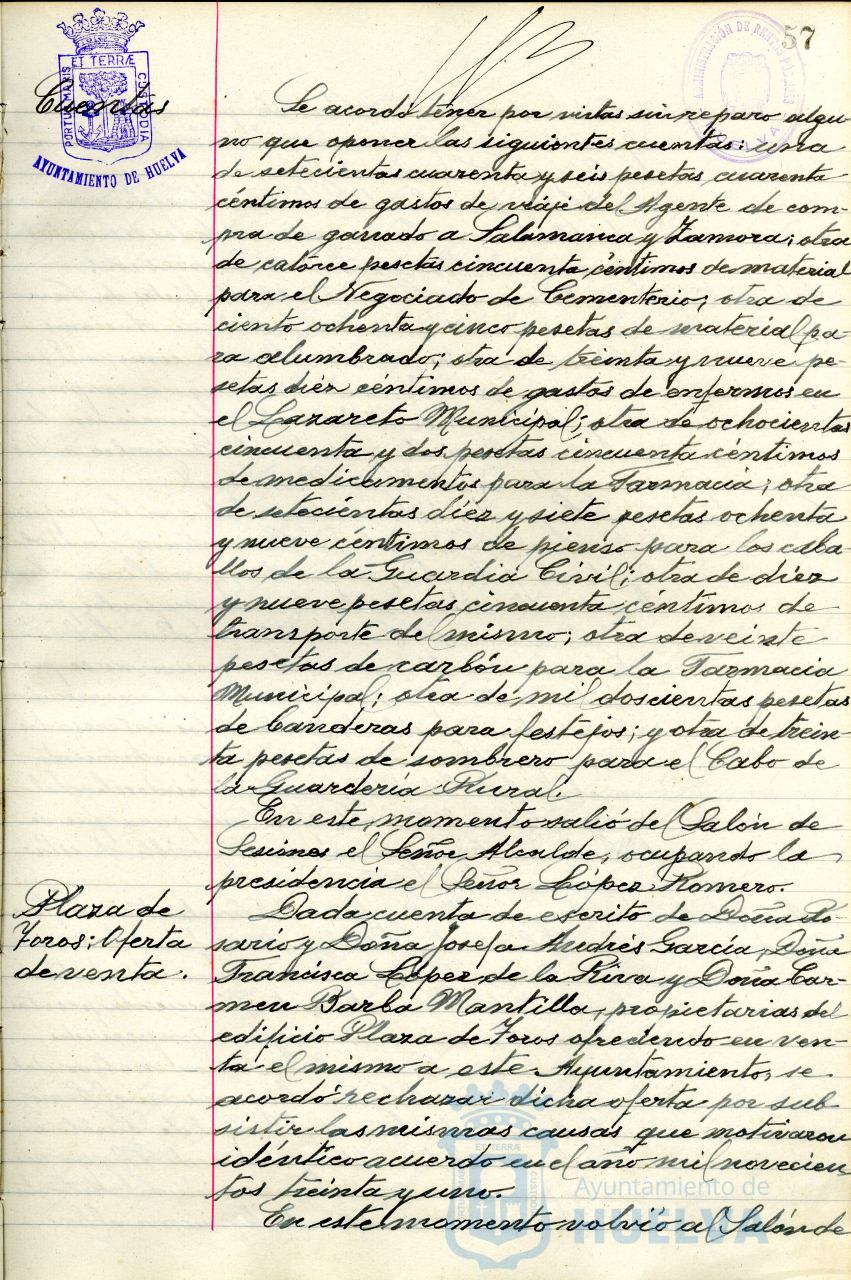 57
ET TERRÆ
PORTUS MARIS
CUSTODIA
AYUNTAMIENTO DE HUELVA
ADMINISTRACIÓN DE RENTAS PÚBLICAS
HUELVA
Cuentas
Se acordó tener por vistas sin reparo algu-
no que oponer las siguientes cuentas: una
de setecientas cuarenta y seis pesetas cuarenta
céntimos de gastos de viaje del Agente de com-
pra de ganado a Salamanca y Zamora; otra
de catorce pesetas cincuenta céntimos de material
para el Negociado de Cementerio; otra de
ciento ochenta y cinco pesetas de material pa-
ra alumbrado; otra de treinta y nueve pe-
setas diéz céntimos de gastos de enfermos en
el Lazareto Municipal; otra de ochocientas
cincuenta y dos pesetas cincuenta céntimos
de medicamentos para la Farmacia; otra
de setecientas diéz y siete pesetas ochenta
y nueve céntimos de pienso para los caba-
llos de la Guardia Civil; otra de diéz
y nueve pesetas cincuenta céntimos de
transporte del mismo; otra de veinte
pesetas de carbón para la Farmacia
Municipal; otra de mil doscientas pesetas
de banderas para festejos; y otra de trein-
ta pesetas de sombrero para el Cabo de
la Guardería Rural.
En este momento salió del Salón de
Sesiones el Señor Alcalde, ocupando la
presidencia el Señor López Romero.
Plaza de
Toros: Oferta
de venta.
Dada cuenta de escrito de Doña Ro-
sario y Doña Josefa Andrés García, Doña
Francisca López de la Riva y Doña Car-
men Barba Mantilla, propietarias del
edificio Plaza de Toros ofreciendo en ven-
ta el mismo a este Ayuntamiento, se
acordó rechazar dicha oferta por sub-
sistir las mismas causas que motivaron
idéntico acuerdo en el año mil novecien-
tos treinta y uno.
En este momento volvió al Salón de
ET TERRÆ
Ayuntamiento de
HUELVA